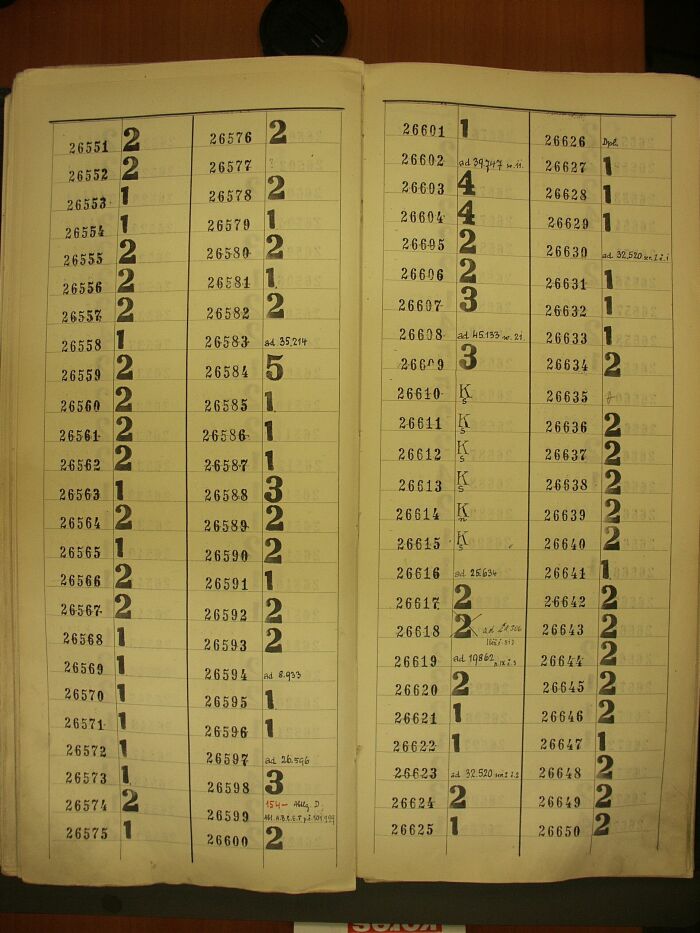 26551 2
26552 2
26553 1
26554 1
26555 2
26556 2
26557 2
26558 1
26559 2
26560 2
26561 2
26562 2
26563 1
26564 2
26565 1
26566 2
26567 2
26568 1
26569 1
26570 1
26571 1
26572 1
26573 1
26574 2
26575 1
26576 2
26577
26578 2
26579 1
26580 2
26581 1
26582 2
26583 ad 35,214
26584 5
26585 1
26586 1
26587 1
26588 3
26589 2
26590 2
26591 1
26592 2
26593 2
26594 ad 8.933
26595 1
26596 1
26597 ad 26.596
26598 3
26599 154-
26600 2
26601 1
26602 ad 39,747
26603 4
26604 4
26605 2
26606 2
26607 3
26608 ad 45.133
26609 3
26610 K s
26611 K s
26612 K s
26613 K s
26614 K n
26615 K s
26616 ad 25.634
26617 2
26618 2 ad
26619 ad 19862
26620 2
26621 1
26622 1
26623 ad 32.520
26624 2
26625 1
26626 Dpl.
26627 1
26628 1
26629 1
26630 ad 32,520
26631 1
26632 1
26633 1
26634 2
26635
26636 2
26637 2
26638 2
26639 2
26640 2
26641 1
26642 2
26643 2
26644 2
26645 2
26646 2
26647 1
26648 2
26649 2
26650 2